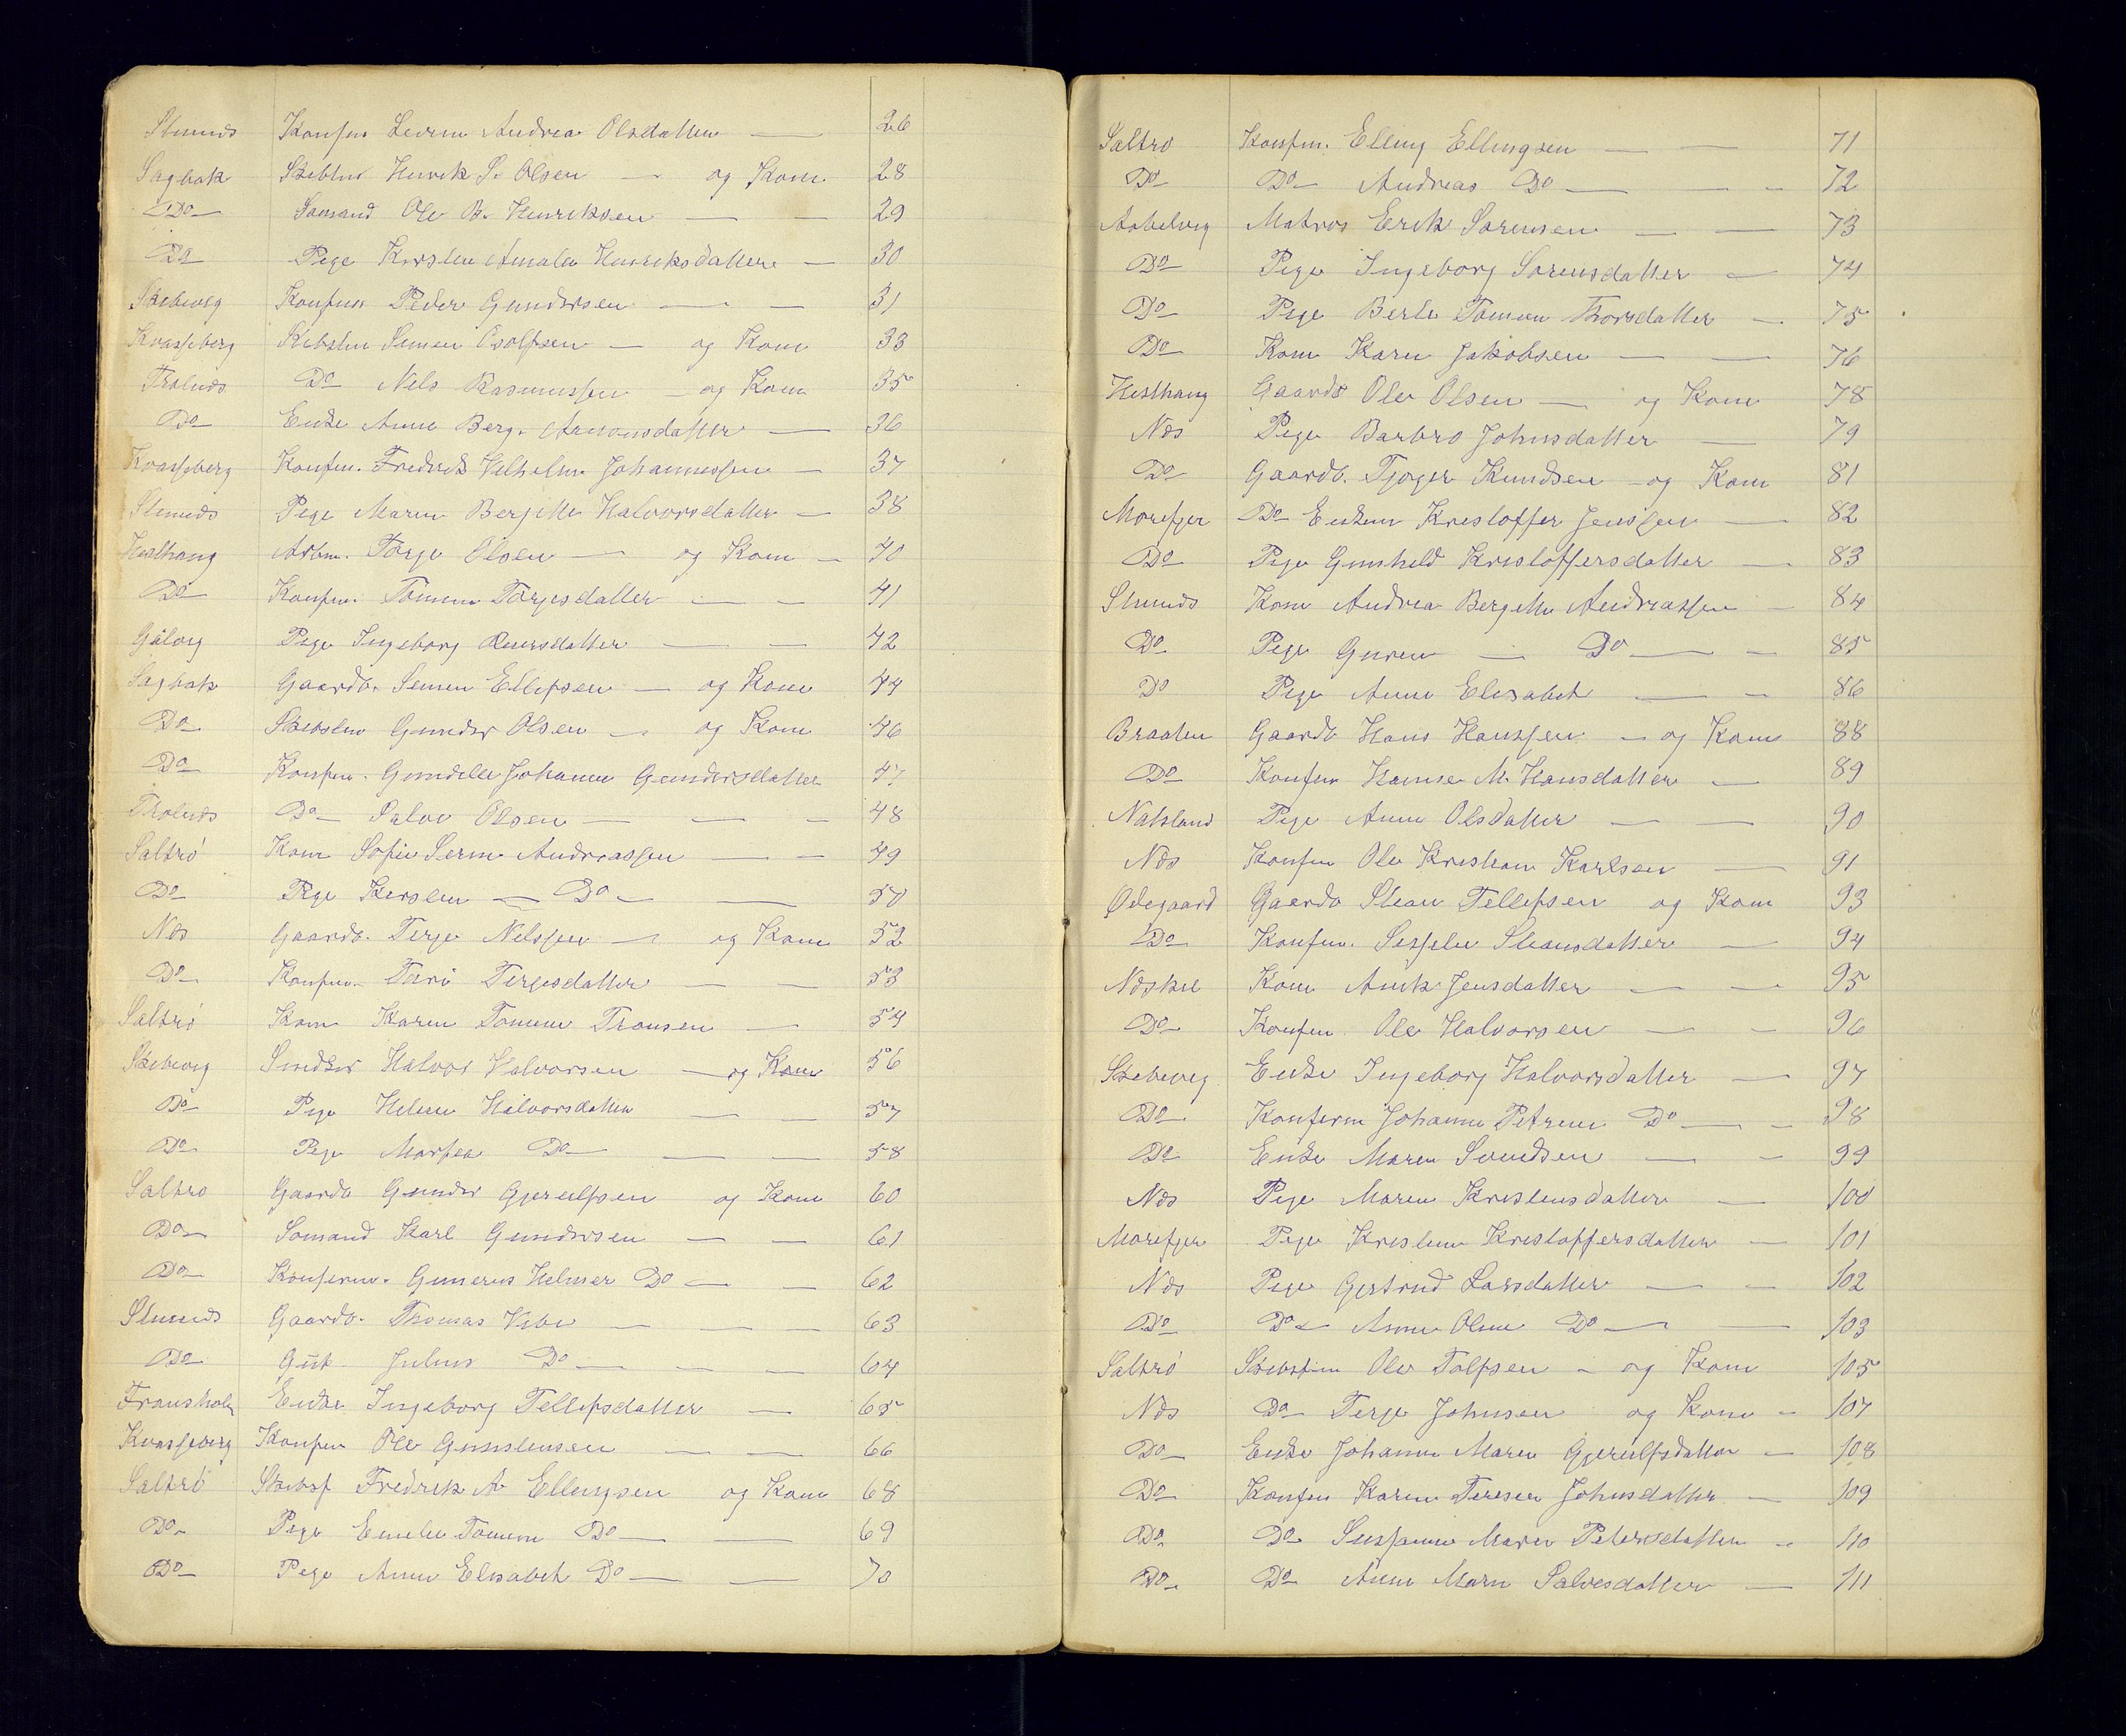 Konfm Andrea Olsdatter — 26
Sagbak Henrik S. Olsen — og Kone 28
Do Sømand Ole B. Henriksen — — 29
Do Pige Kirstin Amalia Henriksdatter — 30
Konfm Peder Gundersen — — 31
Kvasseberg Simen — og Kone 33
Do Nels Rasmussen — og Kone 35
Do Enke Anne Berg. — 36
Kvasseberg Konfm. Fredrik Vilhelm Johannessen — 37
Pige Maren Bergitte Halvorsdatter — 38
Hesthang Arbm. Terje Olsen — og Kone — 40
Do Konfm. Tomine Tørjesdatter — — 41
Pige Ingeborg — — 42
Sagbak Gaardb. Simen Ellefsen — og Kone 44
Do Gunder Olsen — og Kone 46
Do Konfm. Johanne Gundersdatter 47
Do Salve Olsen — — — 48
Saltrø Kone Sofie Andreassen — — 49
Do Pige Kirsten — Do — — 50
Nes Gaardb. Terje Nelssen — og Kone 52
Do Konfm. Terjesdatter — — 53
Saltrø Kone Karen Tomine — 54
Halvor Halvorsen — og Kone 56
Do Pige Helene Halvorsdatter — — 57
Do Pige Do — — 58
Saltrø Gaardb Gunder Gjerulfsen og Kone 60
Do Sømand Karl Gundersen — — 61
Do Konferm. Gunerius Helmer Do — — 62
Gaardb. Thomas Vibe — — — 63
Do Gut Julius Do — — — 64
Enke Ingeborg Tellefsdatter — 65
Kvasseberg Konfm Ole — — 66
Saltrø Fredrik A Ellingsen og Kone 68
Do Pige Emelie Tomine Do — — 69
Do Pige Anne Elisabet Do — — 70
Saltrø Konfm. Elling Ellingsen — — 71
Do Do Andreas Do — — — 72
Matros Erik Sørensen — — 73
Do Pige Ingeborg Sørensdatter — 74
Do Pige Tomine Thorsdatter — 75
Do Kone Karen Jakobsen — — 76
Hesthang Gaardb Ole Olsen — og Kone 78
Nes Pige Barbro Johnsdatter — 79
Do Gaardb. Knudsen — og Kone 81
Morefjer Do Kristoffer Jenssen — 82
Do Pige Gunhild Kristoffersdatter — 83
Kone Andrea Bergitte Andreassen — 84
Do Pige — Do — — 85
Do Pige Anne Elisabet — — 86
Braaten Gaardb Hans Hanssen — og Kone 88
Do Konfm Hanne M. Hansdatter — 89
Natsland Pige Anne Olsdatter — — 90
Nes Konfm Ole Kristian Karlsen — 91
Ødegaard Gaardb Stean Tellefsen og Kone 93
Do Konfm. Steansdatter — 94
Neskil Kone Jensdatter — — 95
Do Konfm. Ole Halvorsen — — 96
Enke Ingeborg Halvorsdatter — 97
Do Konferm Johanne Petrine Do — — 98
Do Enke Maren Svendsen — — 99
Nes Pige Maren Kristensdatter — 100
Morefjer Pige Kristine Kristoffersdatter — 101
Nes Pige Gjertrud Larsdatter — — 102
Do Do Anne Oline Do — — 103
Saltrø Ole — og Kone 105
Nes Do Terje Johnsen og Kone — 107
Do Enke Johanne Maren Gjerulfsdatter — 108
Do Konfm Karen Johnsdatter — 109
Do Do Susanne Maren Petersdatter — 110
Do Do Anne Marie Salvesdatter — 111